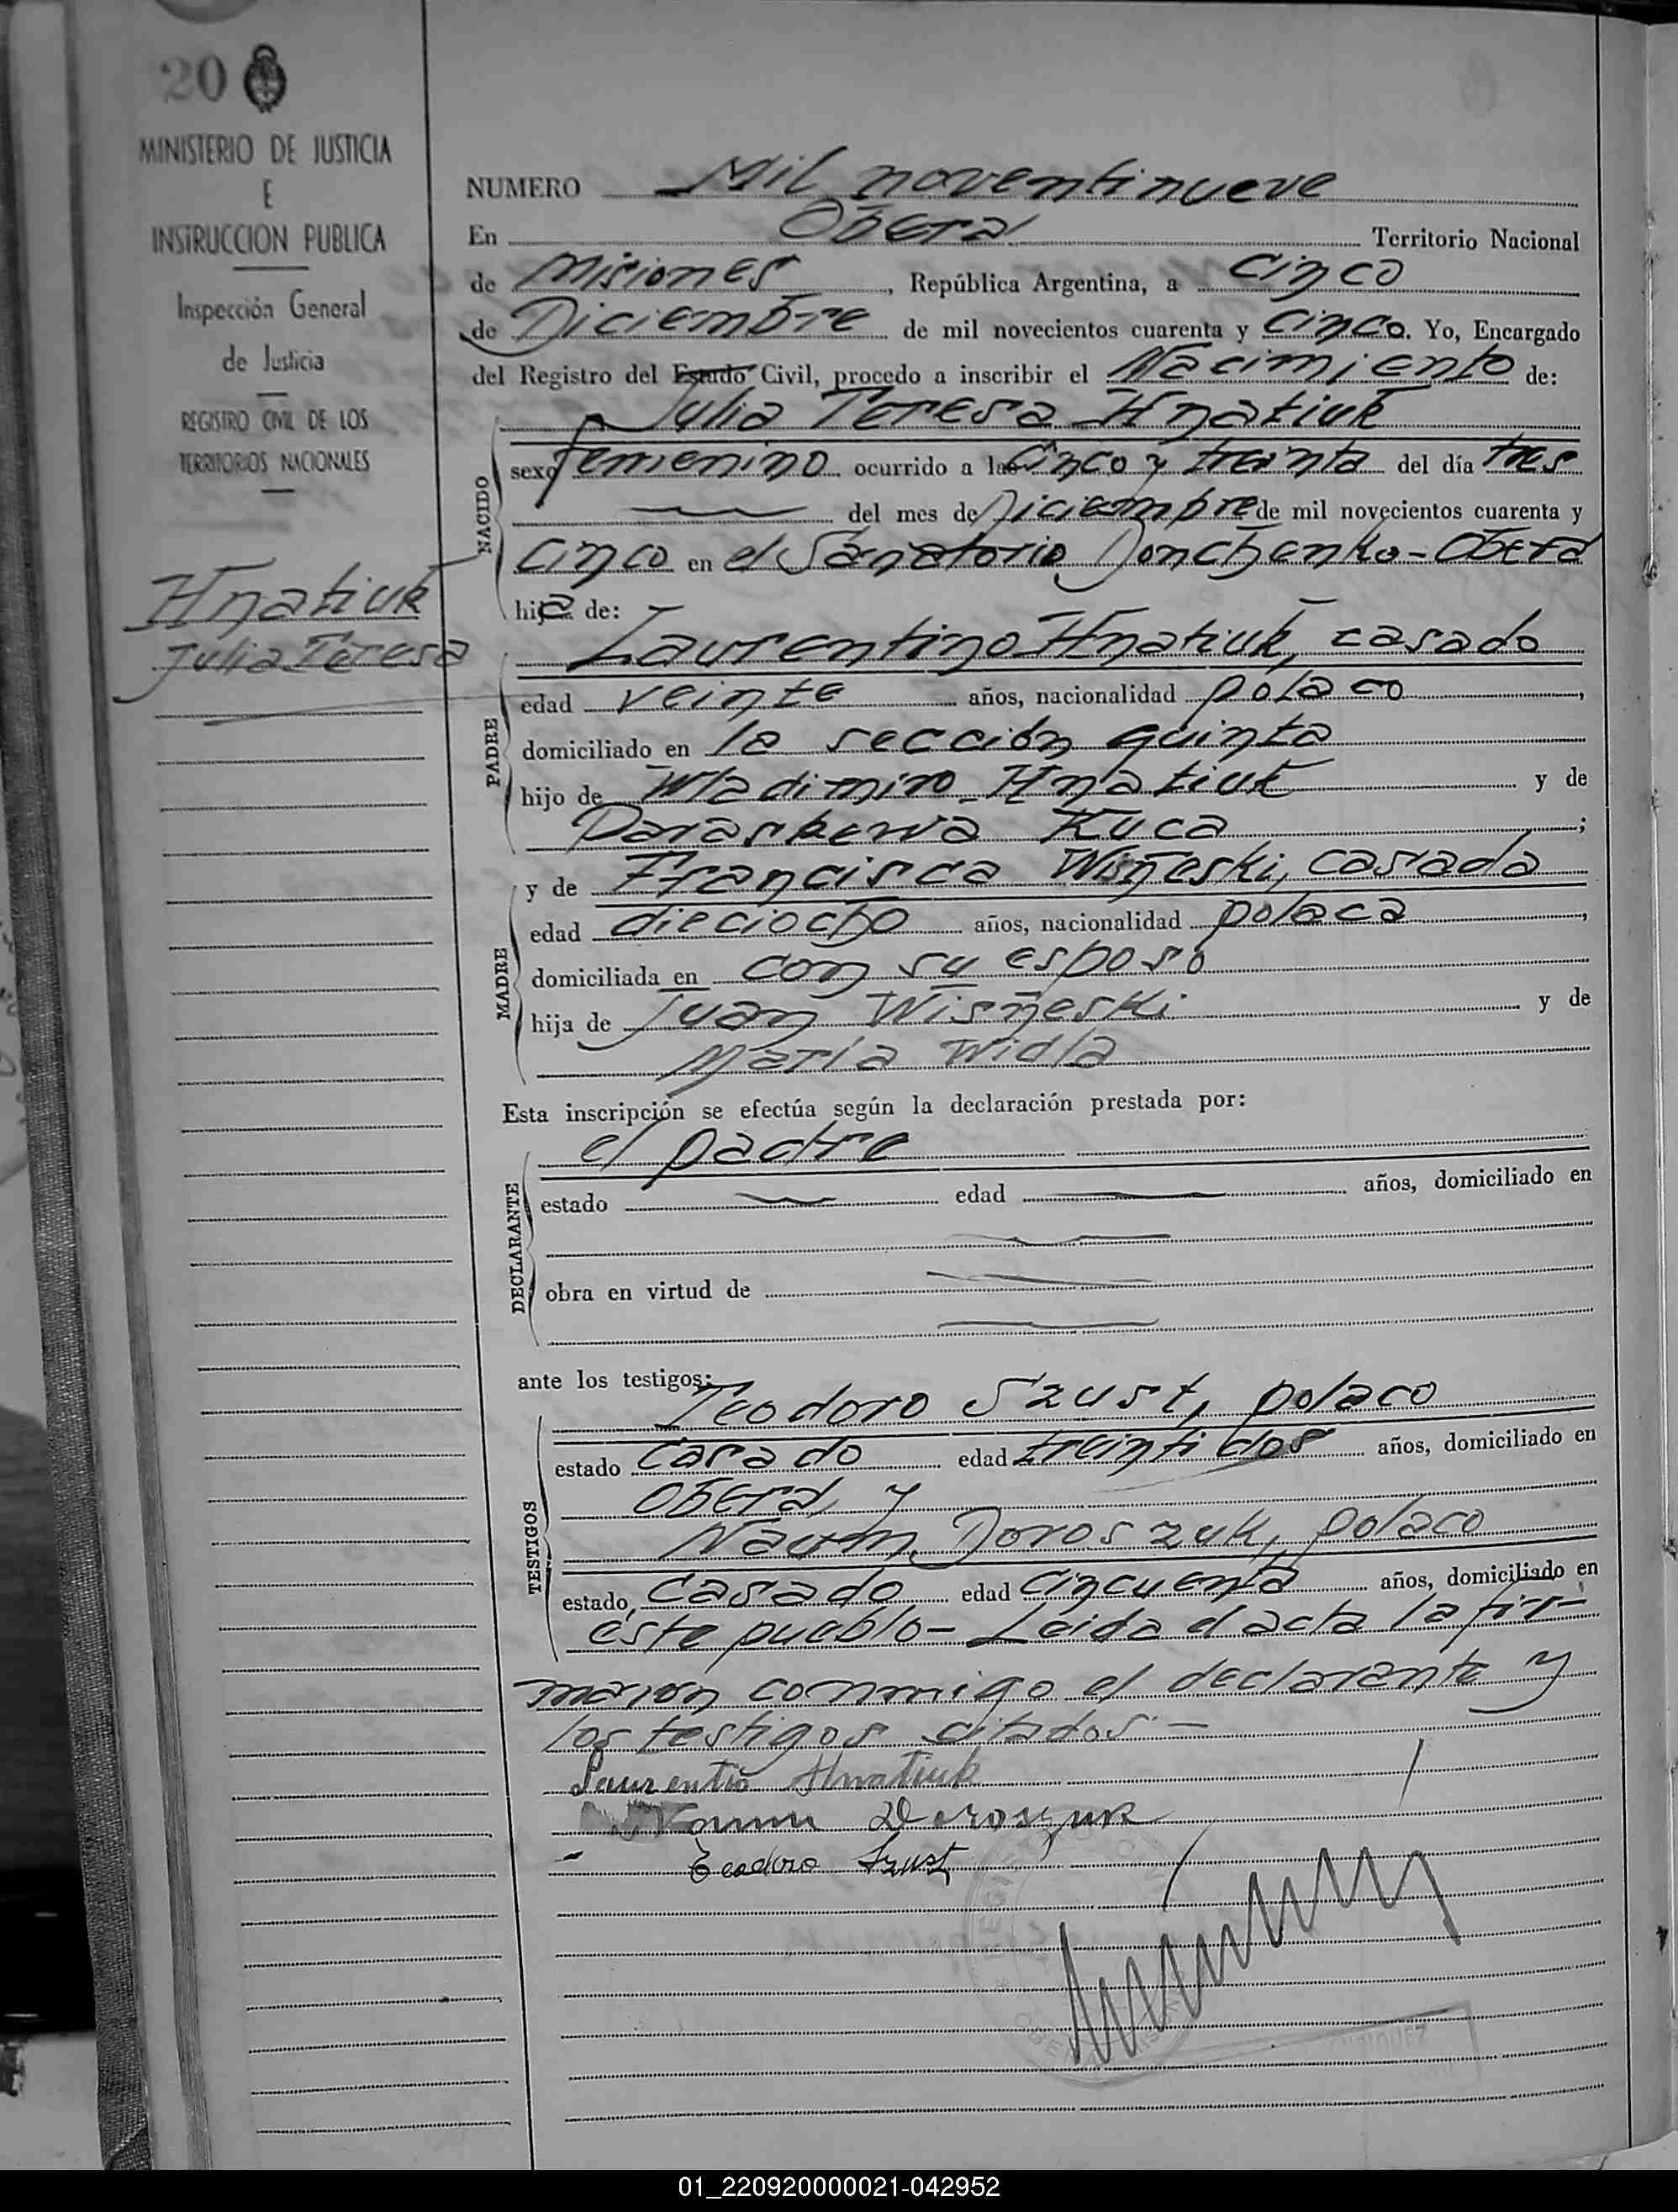 20
MINISTERIO DE JUSTICIA
E
INSTRUCCION PUBLICA
Inspección General
de Justicia
REGISTRO CIVIL DE LOS
TERRITORIOS NACIONALES
Hnatiuk
Julia Teresa
NUMERO Mil noventinueve
En Oberá Territorio Nacional
de Misiones, República Argentina, a cinco
de Diciembre de mil novecientos cuarenta y cinco. Yo, Encargado
del Registro del Estado Civil, procedo a inscribir el Nacimiento de:
NACIDO
Julia Teresa Hnatiuk
sexo femenino ocurrido a las cinco y treinta del día tres
del mes de Diciembre de mil novecientos cuarenta y
cinco en el Sanatorio Donchenko - Oberá
hija de:
PADRE
Laurentino Hnatiuk, casado
edad veinte años, nacionalidad polaco,
domiciliado en la sección quinta
hijo de Wladimiro Hnatiuk y de
Paraskewa Kuca;
MADRE
y de Francisca Wisñeski, casada
edad dieciocho años, nacionalidad polaca,
domiciliada en con su esposo
hija de Juan Wisñeski y de
María Widla
Esta inscripción se efectúa según la declaración prestada por:
DECLARANTE
el padre
estado edad años, domiciliado en
obra en virtud de
ante los testigos:
TESTIGOS
Teodoro Szust, polaco
estado casado edad treintidos años, domiciliado en
Oberá y
Naum Doroszuk, polaco
estado casado edad cincuenta años, domiciliado en
este pueblo - Leida el acta la fir-
maron conmigo el declarante y
los testigos citados -
Laurentio Hnatiuk
Naum Doroszuk
Teodoro Szust
01_220920000021-042952